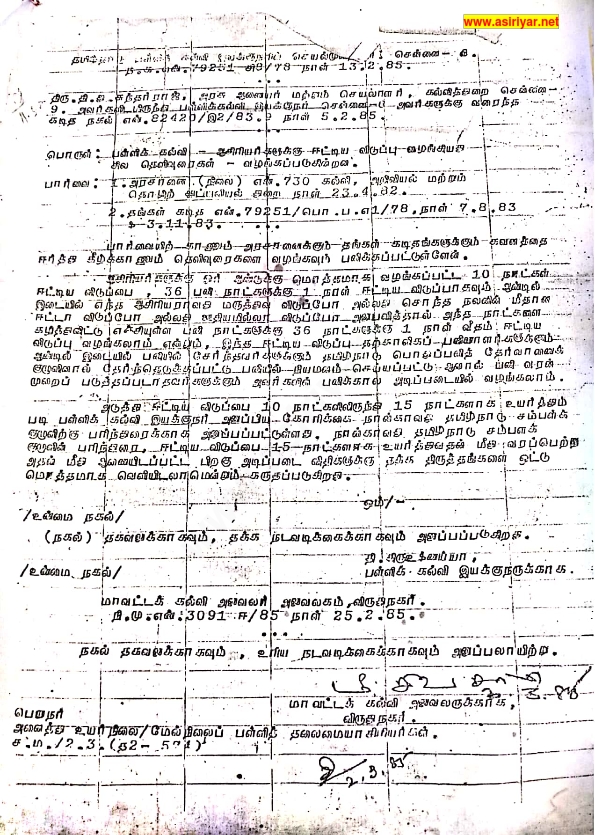 www.asiriyar.net
தமிழ்நாடு பள்ளிக் கல்வி இயக்குநரின் செயல்முறைகள் சென்னை-6.
ந.க.எண்.79251 /78 நாள் 13.2.85.
...
திரு.தி.வ.சுந்தரராஜ், அரசு ஆணையர் மற்றும் செயலாளர், கல்வித்துறை சென்னை-
9. அவர்களிடமிருந்து பள்ளிக்கல்வி இயக்குநர் சென்னை-6 அவர்களுக்கு வரைந்த
கடித நகல் எண்.82420/இ2/83.9 நாள் 5.2.85.
.....
பொருள்: பள்ளிக் கல்வி - ஆசிரியர்களுக்கு ஈட்டிய விடுப்பு-வழங்கியது
சில தெளிவுரைகள் - வழங்கப்படுகிறது.
பார்வை: 1.அரசாணை.(நிலை) எண்.730 கல்வி, அறிவியல் மற்றும்
தொழில் நுட்பவியல் துறை நாள் 23.4.82.
2.தங்கள் கடித எண்.79251/பொ.ப.எ1/78,நாள் 7.8.83
3.11.83
...
பார்வையில் காணும் அரசாணைக்கும் தங்கள் கடிதங்களுக்கும் கவனத்தை
ஈர்த்து கீழ்க்காணும் தெளிவுரைகளை வழங்கவும் பணிக்கப்பட்டுள்ளேன்.
ஆசிரியர்களுக்கு ஓர் ஆண்டுக்கு மொத்தமாக வழங்கப்பட்ட 10 நாட்கள்
ஈட்டிய விடுப்பை , 36 பணி நாட்களுக்கு 1 நாள் ஈட்டிய விடுப்பாகவும் ஆண்டில்
இடையில் எந்த ஆசிரியராவது மருத்துவ விடுப்போ அல்லது சொந்த நலனின் மீதான
ஈட்டா விடுப்போ அல்லது ஊதியமில்லா விடுப்போ அனுபவித்தால் அந்த நாட்களை
கழித்துவிட்டு எஞ்சியுள்ள பணி நாட்களுக்கு 36 நாட்களுக்கு 1 நாள் வீதம் ஈட்டிய
விடுப்பு வழங்கலாம் என்றும், இந்த ஈட்டிய விடுப்பு தற்காலிகப் பணியாளர்களுக்கும்
ஆண்டின் இடையில் பணியில் சேர்ந்தவர்களுக்கும் தமிழ்நாடு பொதுப்பணித் தேர்வாணைக்
குழுவினால் தேர்ந்தெடுக்கப்பட்டு பணியில் நியமனம் செய்யப்பட்டு ஆனால் பணி வரன்
முறைப் படுத்தப்படாதவர்களுக்கும் அவர்களின் பணிக்கால அடிப்படையில் வழங்கலாம்.
அடுத்து ஈட்டிய விடுப்பை 10 நாட்களிலிருந்து 15 நாட்களாக உயர்த்தும்
படி பள்ளிக் கல்வி இயக்குநர் அனுப்பிய கோரிக்கை நான்காவது தமிழ்நாடு சம்பளக்
குழுவிற்கு பரிந்துரைக்காக அனுப்பப்பட்டுள்ளது. நான்காவது தமிழ்நாடு சம்பளக்
குழுவின் பரிந்துரை, ஈட்டிய விடுப்பை 15 நாட்களாக உயர்த்துவதன் மீது வரப்பெற்று
அதன் மீது ஆணையிடப்பட்ட பிறகு அடிப்படை விதிகளுக்கு தக்க திருத்தங்களை ஒட்டு
மொத்தமாக வெளியிடலாமென்றும் கருதப்படுகிறது.
ஒம்/-
/உண்மை நகல்/
(நகல்) தகவலுக்காகவும், தக்க நடவடிக்கைக்காகவும் அனுப்பப்படுகிறது.
பள்ளிக் கல்வி இயக்குநருக்காக.
/உண்மை நகல்/
மாவட்டக் கல்வி அலுவலர் அலுவலகம்,விருதுநகர்.
நி.மு.எண்.3091 ஈ/85 நாள் 25.2.85.
...
நகல் தகவலுக்காகவும் , உரிய நடவடிக்கைக்காகவும் அனுப்பலாயிற்று.
மாவட்டக் கல்வி அலுவலருக்காக,
விருதுநகர்.
பெறுநர்
அனைத்து உயர்நிலை/மேல்நிலைப் பள்ளித் தலைமையாசிரியர்கள்.
ச.ம./2.3.
2.3.85